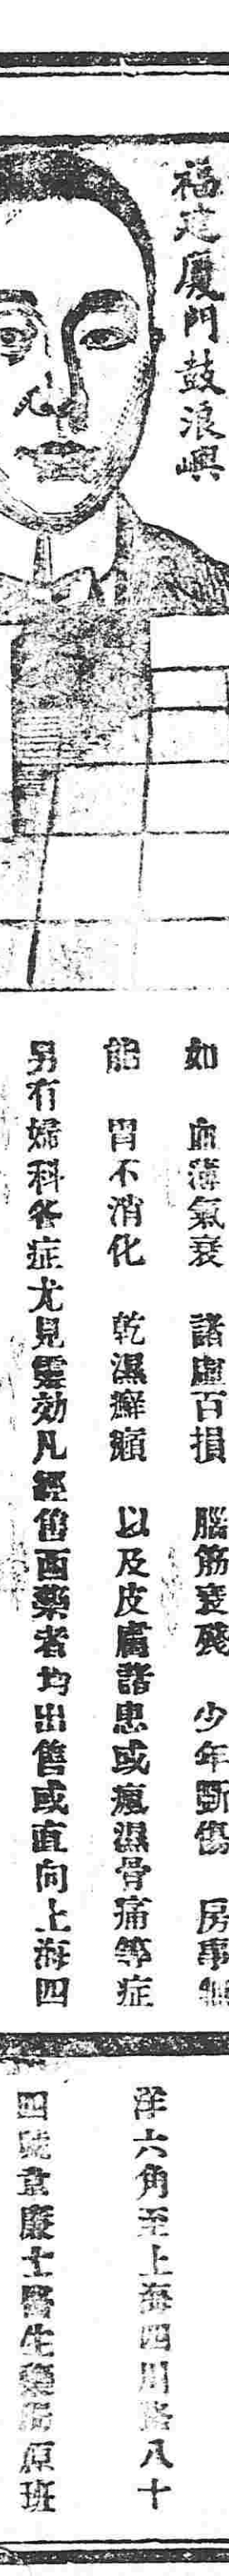 福建厦門鼓浪嶼
如 血薄氣衰 諸虛百損 腦筋衰殘 少年斵傷 房事無
能 胃不消化 乾濕癬癩 以及皮膚諸患或瘋濕骨痛等症
另有婦科各症尤見靈効凡經售西藥者均出售或直向上海四
洋六角至上海四川路八十
四號韋廉士醫生藥局原班